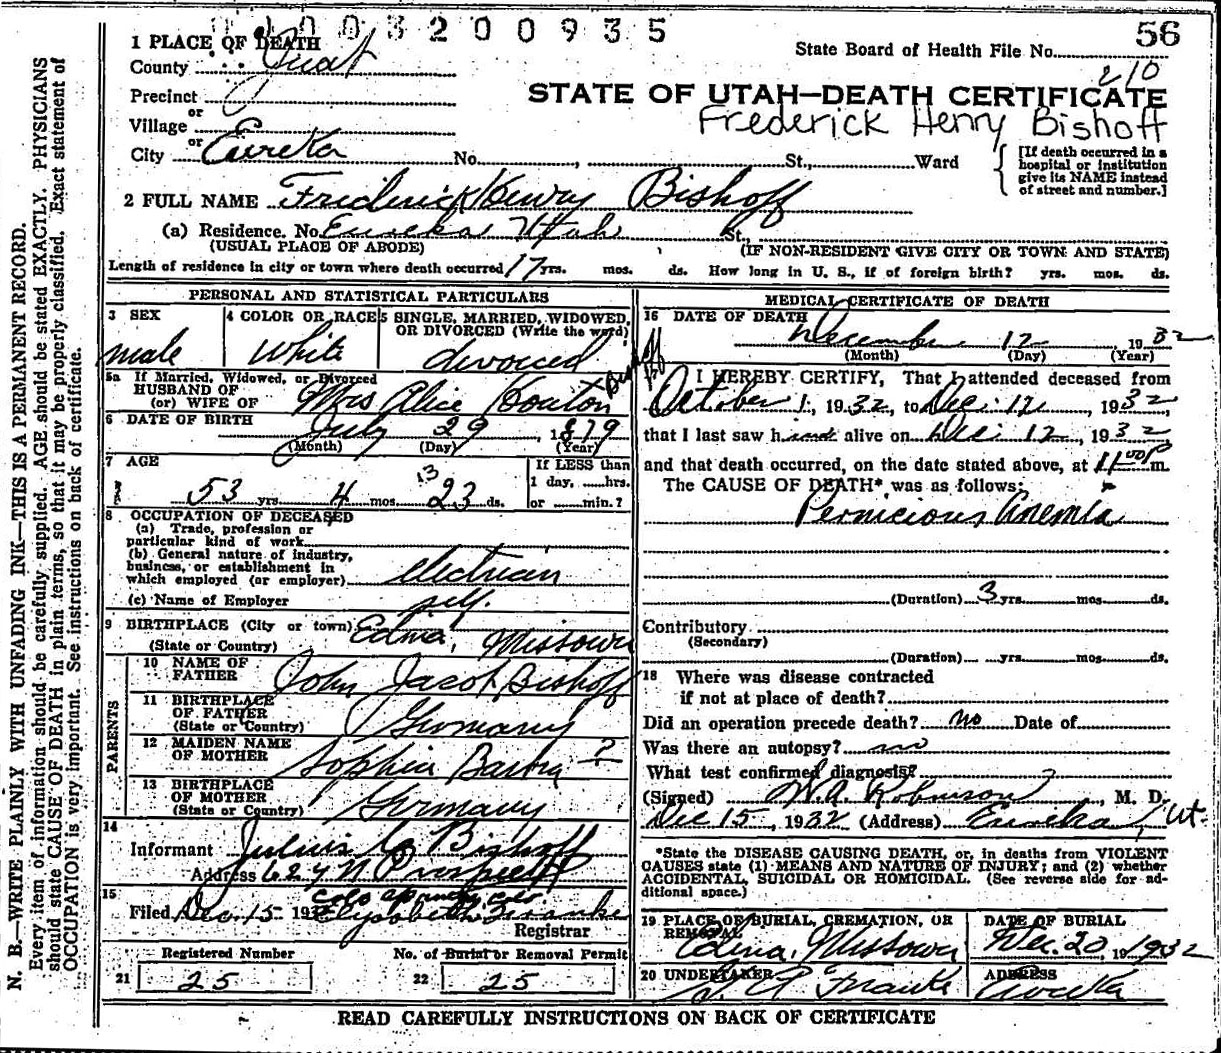 003200935
56
1 PLACE OF DEATH
State Board of Health File No.
County Juab
210
Precinct
STATE OF UTAH—DEATH CERTIFICATE
or
Village
Frederick Henry Bishoff
or
City Eureka No. , St., Ward
[If death occurred in a
hospital or institution
give its NAME instead
of street and number.]
2 FULL NAME Fridrick Henry Bishoff
(a) Residence. No. Eureka Utah St.,
(USUAL PLACE OF ABODE) (IF NON-RESIDENT GIVE CITY OR TOWN AND STATE)
Length of residence in city or town where death occurred 17 yrs. mos. ds. How long in U. S., if of foreign birth? yrs. mos. ds.
PERSONAL AND STATISTICAL PARTICULARS
3 SEX
male
4 COLOR OR RACE
White
5 SINGLE, MARRIED, WIDOWED,
OR DIVORCED (Write the word)
divorced
5a If Married, Widowed, or Divorced
HUSBAND OF
(or) WIFE OF Mrs Alice Bishoff
6 DATE OF BIRTH July 29, 1879
(Month) (Day) (Year)
7 AGE
13
53 yrs. 4 mos. 23 ds.
If LESS than
1 day, hrs.
or min.?
8 OCCUPATION OF DECEASED
(a) Trade, profession or
particular kind of work
(b) General nature of industry,
business, or establishment in
which employed (or employer) electrician
(c) Name of Employer self.
9 BIRTHPLACE (City or town) Edina, Missouri
(State or Country)
PARENTS
10 NAME OF
FATHER John Jacob Bishoff
11 BIRTHPLACE
OF FATHER
(State or Country) Germany
12 MAIDEN NAME
OF MOTHER Sophia Barbra ?
13 BIRTHPLACE
OF MOTHER
(State or Country) Germany
14
Informant Julius C Bishoff
Address 624 N Prospect
15
Filed Dec. 15 193 Elizabeth Franke
Registrar
Registered Number
21 25
No. of Burial or Removal Permit
22 25
MEDICAL CERTIFICATE OF DEATH
16 DATE OF DEATH
December 12, 1932
(Month) (Day) (Year)
I HEREBY CERTIFY, That I attended deceased from
October 1, 1932, to Dec. 12, 1932,
that I last saw him alive on Dec. 12, 1932
and that death occurred, on the date stated above, at 11 00 P m.
The CAUSE OF DEATH* was as follows:
Pernicious Anemia
(Duration) 3 yrs. mos. ds.
Contributory
(Secondary)
(Duration) yrs. mos. ds.
18 Where was disease contracted
if not at place of death?
Did an operation precede death? no Date of
Was there an autopsy? no
What test confirmed diagnosis?
(Signed) W. A. Robinson, M. D.
Dec 15, 1932 (Address) Eureka, Ut.
*State the DISEASE CAUSING DEATH, or, in deaths from VIOLENT
CAUSES state (1) MEANS AND NATURE OF INJURY; and (2) whether
ACCIDENTAL, SUICIDAL OR HOMICIDAL. (See reverse side for ad-
ditional space.)
19 PLACE OF BURIAL, CREMATION, OR
REMOVAL
Edina, Missouri
DATE OF BURIAL
Dec. 20, 1932
20 UNDERTAKER
Franke
ADDRESS
Eureka
READ CAREFULLY INSTRUCTIONS ON BACK OF CERTIFICATE
N. B.—WRITE PLAINLY WITH UNFADING INK—THIS IS A PERMANENT RECORD.
Every item of information should be carefully supplied. AGE should be stated EXACTLY. PHYSICIANS
should state CAUSE OF DEATH in plain terms, so that it may be properly classified. Exact statement of
OCCUPATION is very important. See instructions on back of certificate.